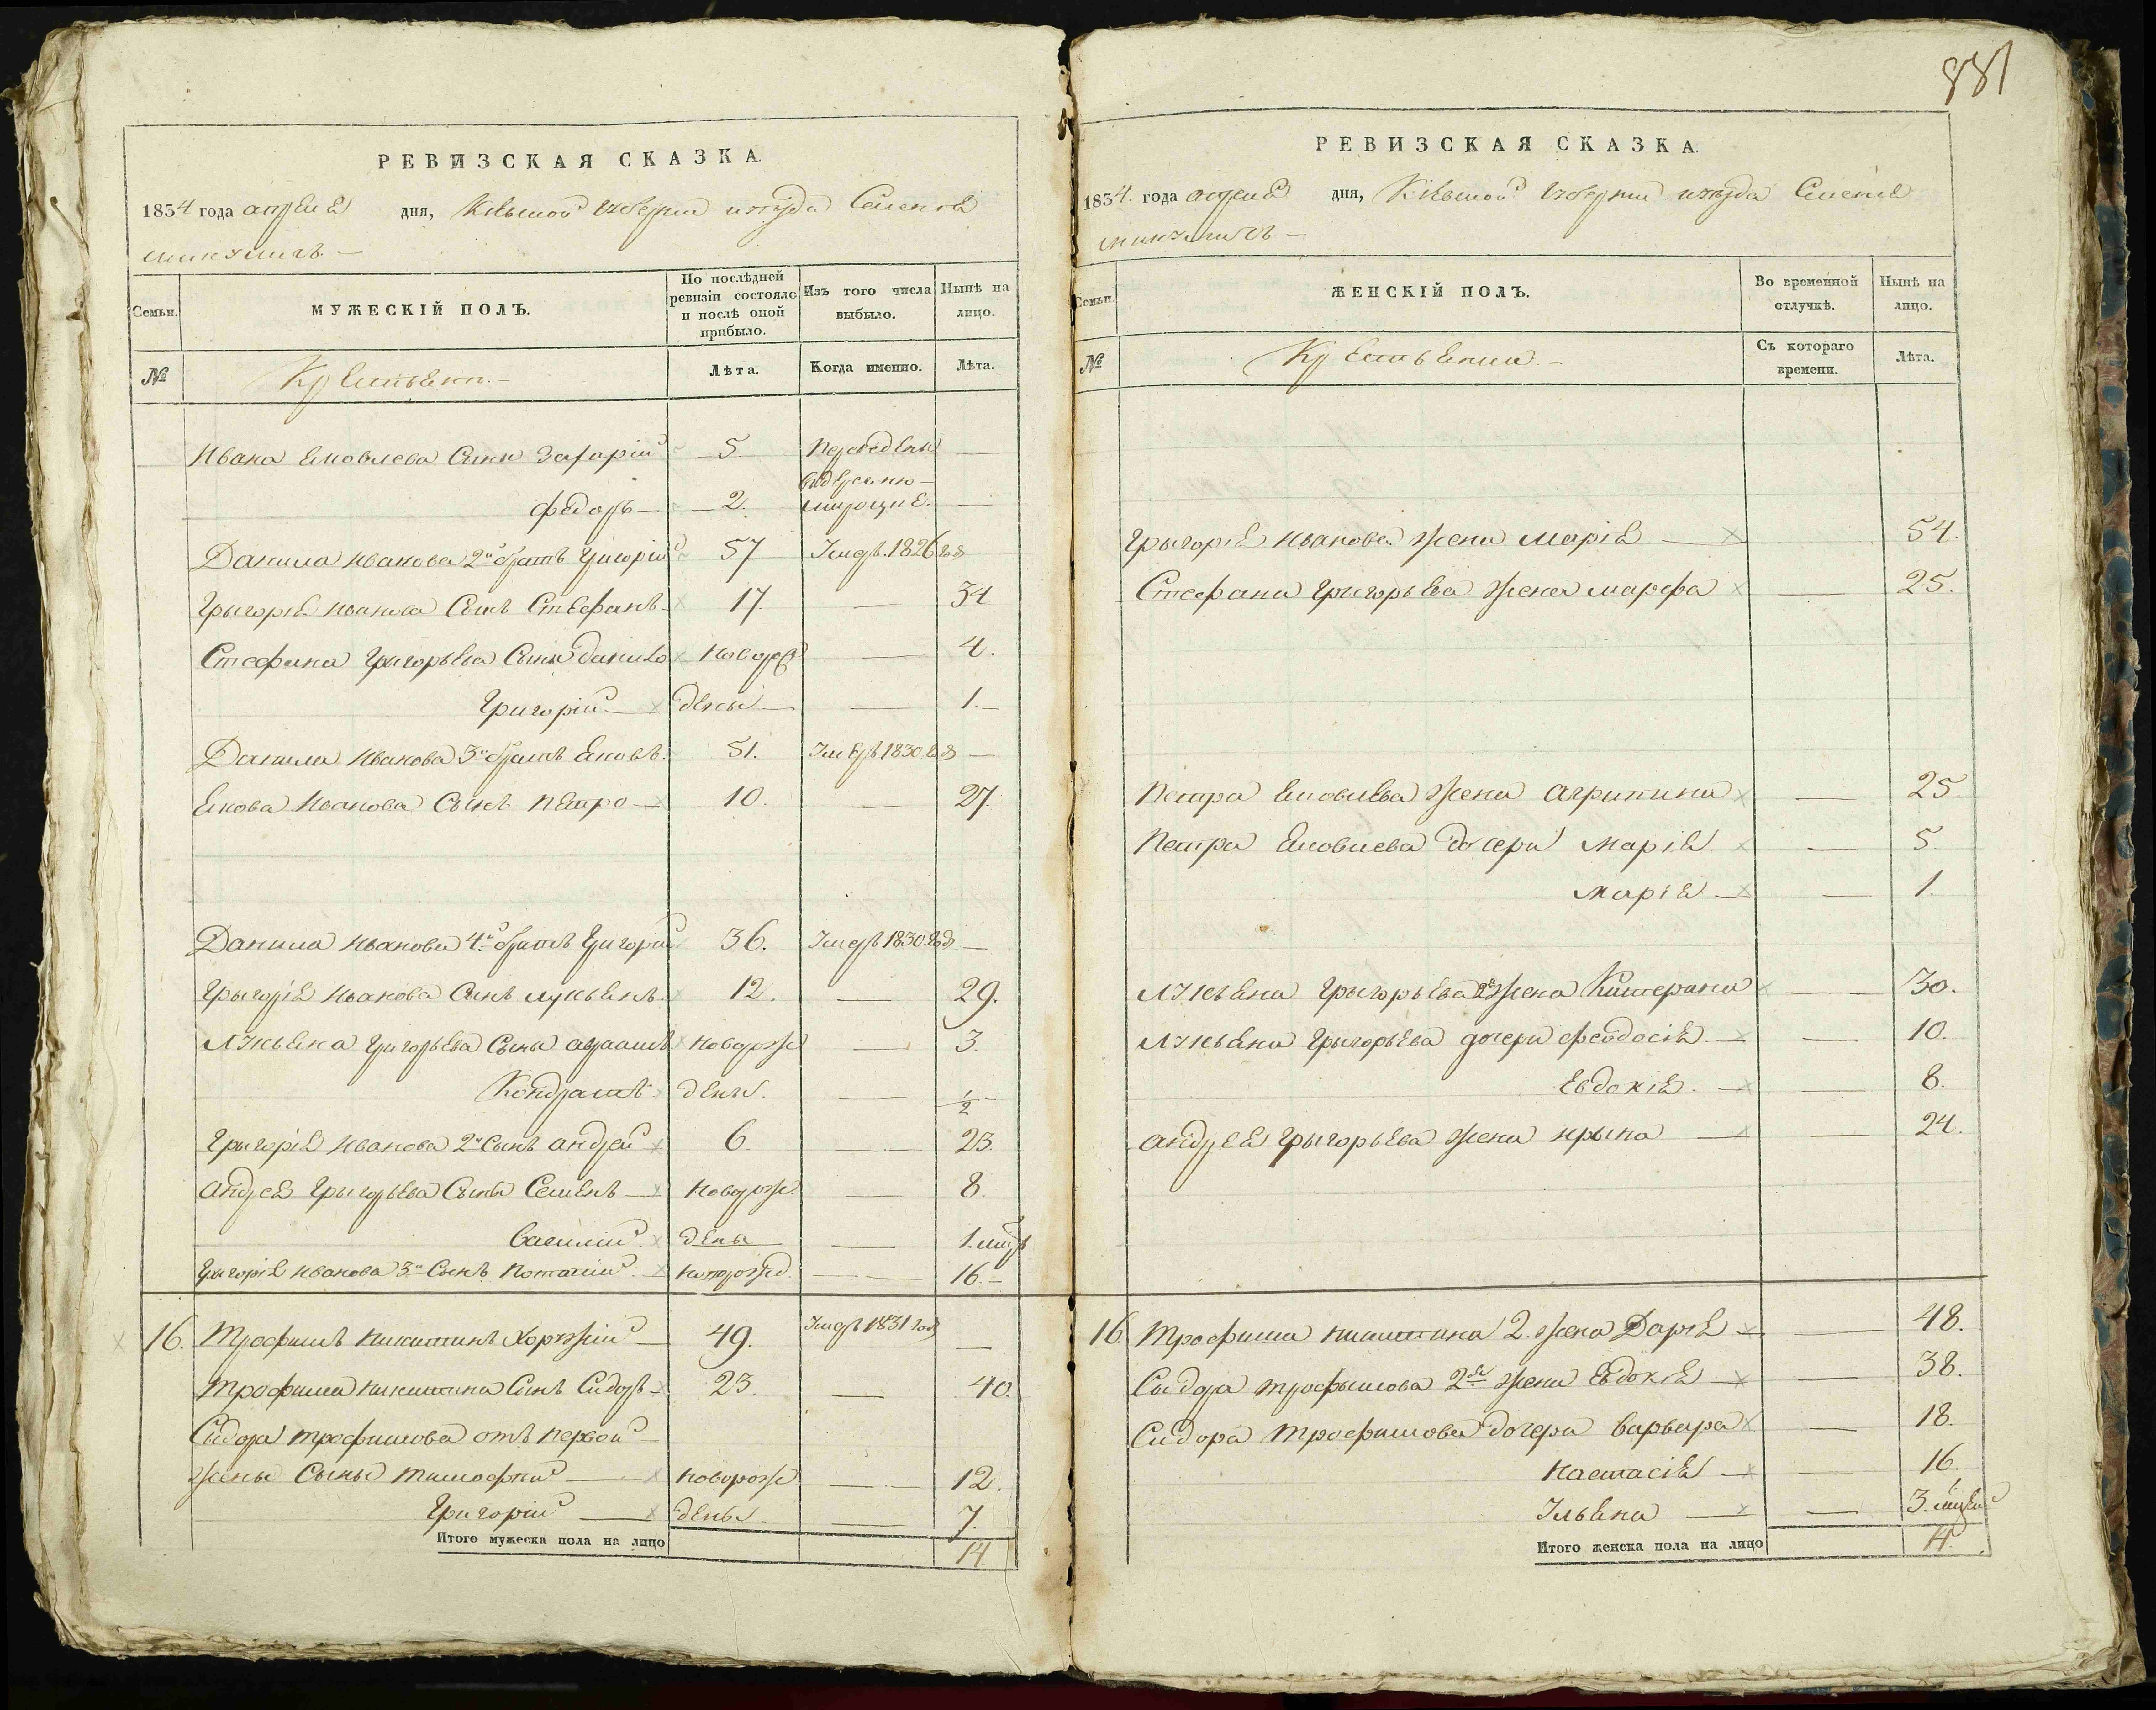 881
РЕВИЗСКАЯ СКАЗКА.
1834 года апреля дня, Кіевской Губерніи уезда Селенія
МУЖЕСКІЙ ПОЛЪ.
Семьи.
По послѣдней ревизіи состояло и послѣ оной прибыло.
Изъ того числа выбыло.
Нынѣ на лицо.
№
Крестьяне.
Лѣта.
Когда именно.
Лѣта.
Ивана Яковлева Сыны Захарій 5 Переведены —
Федоръ — 2. —
Данила Иванова 2й братъ Григорій 57 Умеръ 1826 год
Григорія Иванова Сынъ Стефанъ 17. — 34
Стефана Григорьева Сыны Данило новорож — 4.
Григорій — дены — — 1. —
Данила Иванова 3й братъ Яковъ. 51. Умеръ 1830 год —
Якова Иванова Сынъ Петро — 10. — 27
Данила Иванова 4й братъ Григорій 36. Умеръ 1830 год —
Григорія Иванова Сынъ лукьянъ. 12. — 29.
Лукьяна Григорьева Сыны новорож — 3.
Кондратъ дены. — 1/2
Григорія Иванова 2й Сынъ андрей 6. — 23.
андрея Григорьева Сыны Семенъ — новорож — 8.
Василій дены — 1.
Григорія Иванова 3й Сынъ Потапій. новорожд. — 16. —
16. Трофимъ Никитинъ Хоружій — 49. Умеръ 1831 год —
Трофима Никитина Сынъ Сидоръ 23. — 40.
Сидора Трофимова отъ первой
жены Сыны Тимофей — новорож — 12.
Григорій — дены. — 7.
Итого мужеска пола на лицо 14
РЕВИЗСКАЯ СКАЗКА.
1834. года апреля дня, Кіевской Губерніи уезда Селенія
Семьи.
ЖЕНСКІЙ ПОЛЪ.
Во временной отлучкѣ.
Нынѣ на лицо.
№
Крестьянки. —
Съ котораго времени.
Лѣта.
Григорія Иванова жена Марія — 54.
Стефана Григорьева жена марфа — 25.
Петра Яковлева жена агрипина — 25
Петра Яковлева дочери Марія — 5.
Марія — — 1.
Лукьяна Григорьева 2я жена Катерина — 30.
Лукьяна Григорьева дочери феодосія. — — 10.
Евдокія. — — 8.
андрея Григорьева жена ирына — — 24.
16. Трофима Никитина 2. жена Дарія — — 48.
Сидора Трофимова 2я жена Евдокія — — 38.
Сидора Трофимова дочери варвара — 18.
Настасія — — 16.
Ульяна — — 3.
Итого женска пола на лицо 14.